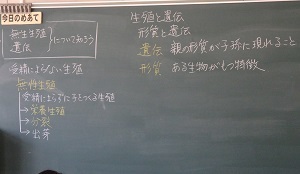 今日のめあて
無性生殖
遺伝
について知ろう
受精によらない生殖
無性生殖
受精によらずに子をつくる生殖
→栄養生殖
→分裂
→出芽
生殖と遺伝
形質と遺伝
遺伝 親の形質が子孫に現れること
形質 ある生物がもつ特徴